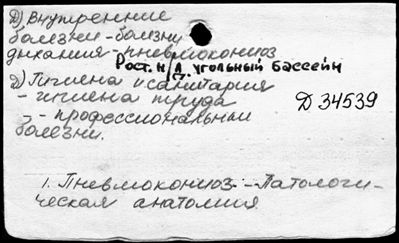 Д) Внутренние
болезни - болезни
дыхания - пневмокониоз
Рост. н/Д. угольный бассейн
Д) Гигиена и санитария
- гигиена труда
- профессиональные
болезни.
Д 34539
1. Пневмокониоз - Патологи-
ческая анатомия